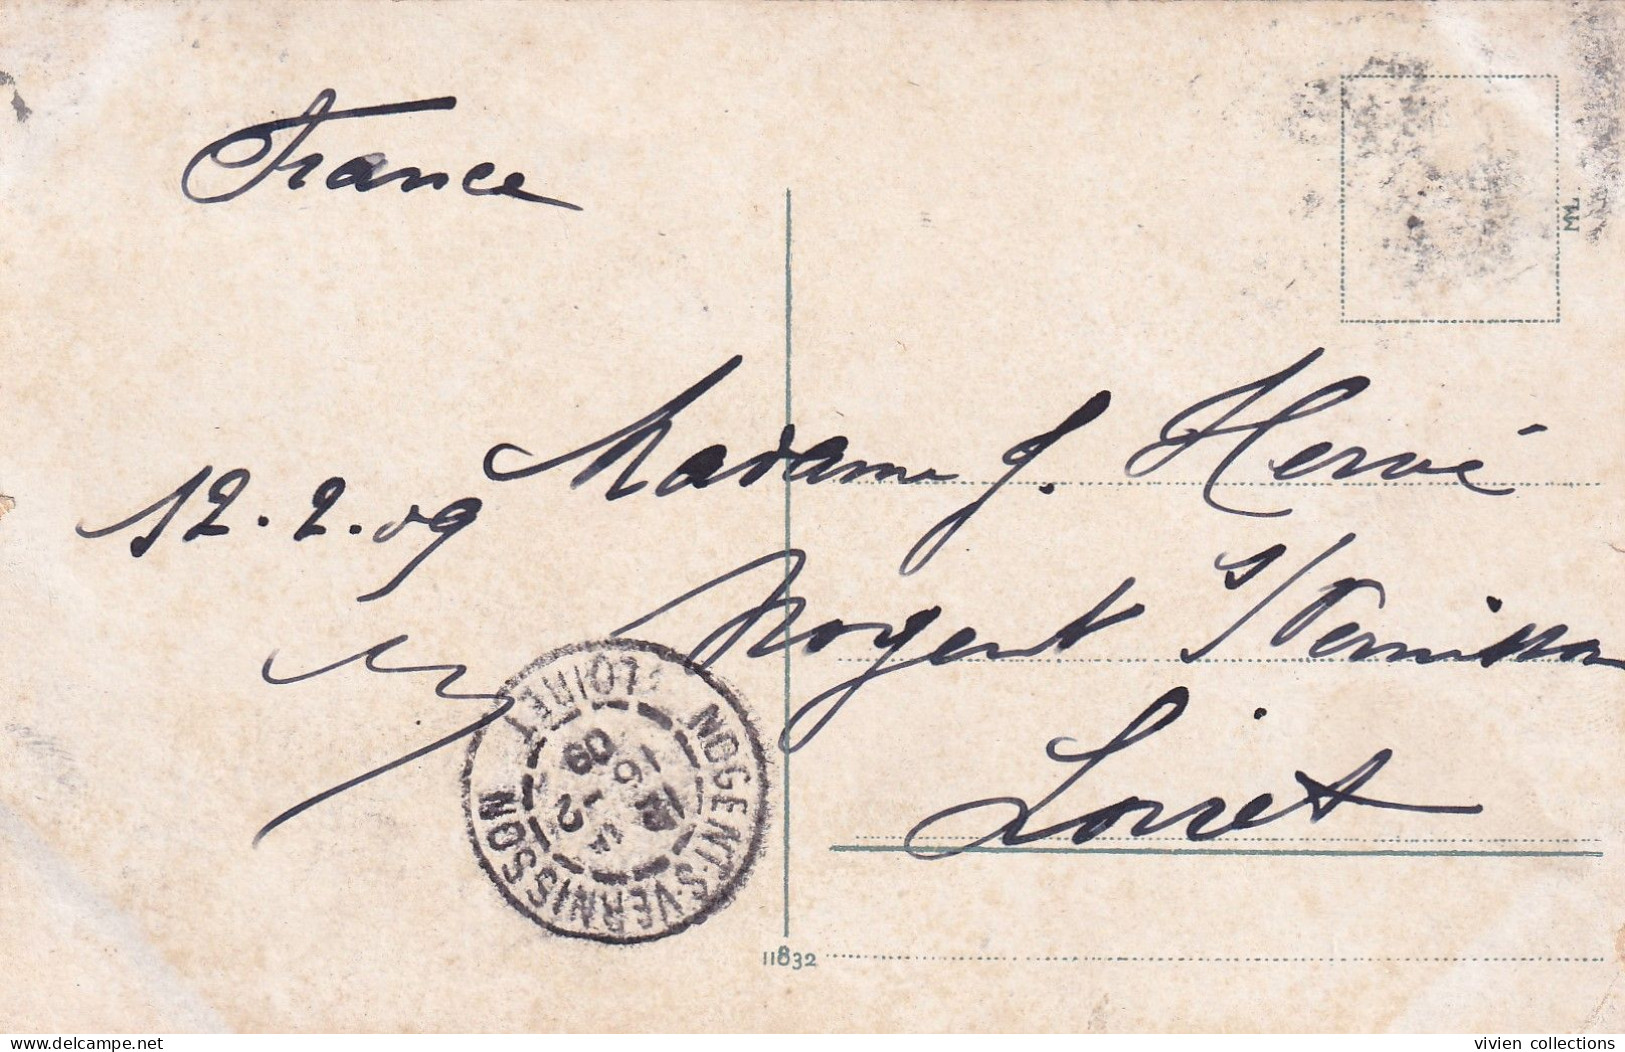 France
MM.
Madame J. Hervé
12.2.09
Nogent s/Vernisson
Loiret
NOGENT-S-VERNISSON
LOIRET
16
2
09
11832
www.delcampe.net
vivien collections